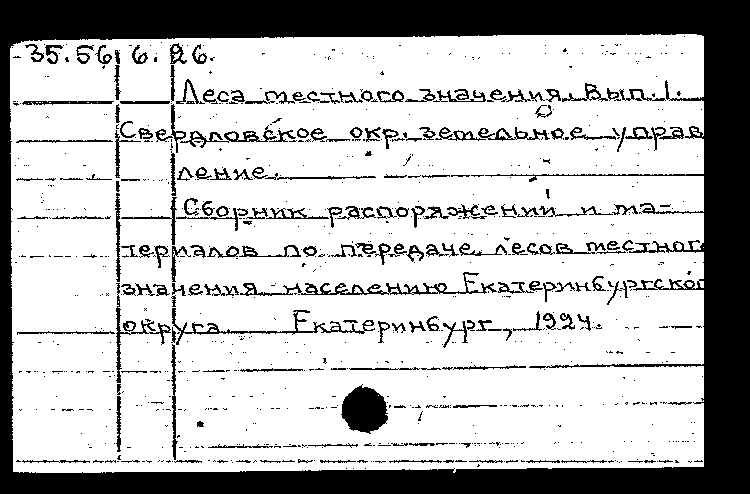 35.56.6.26.
Леса местного значения. Вып. 1.
Свердловское окр. земельное управ
ление.
Сборник распоряжений и ма-
териалов по передаче лесов местного
значения населению Екатеринбургског
округа. Екатеринбург, 1924.